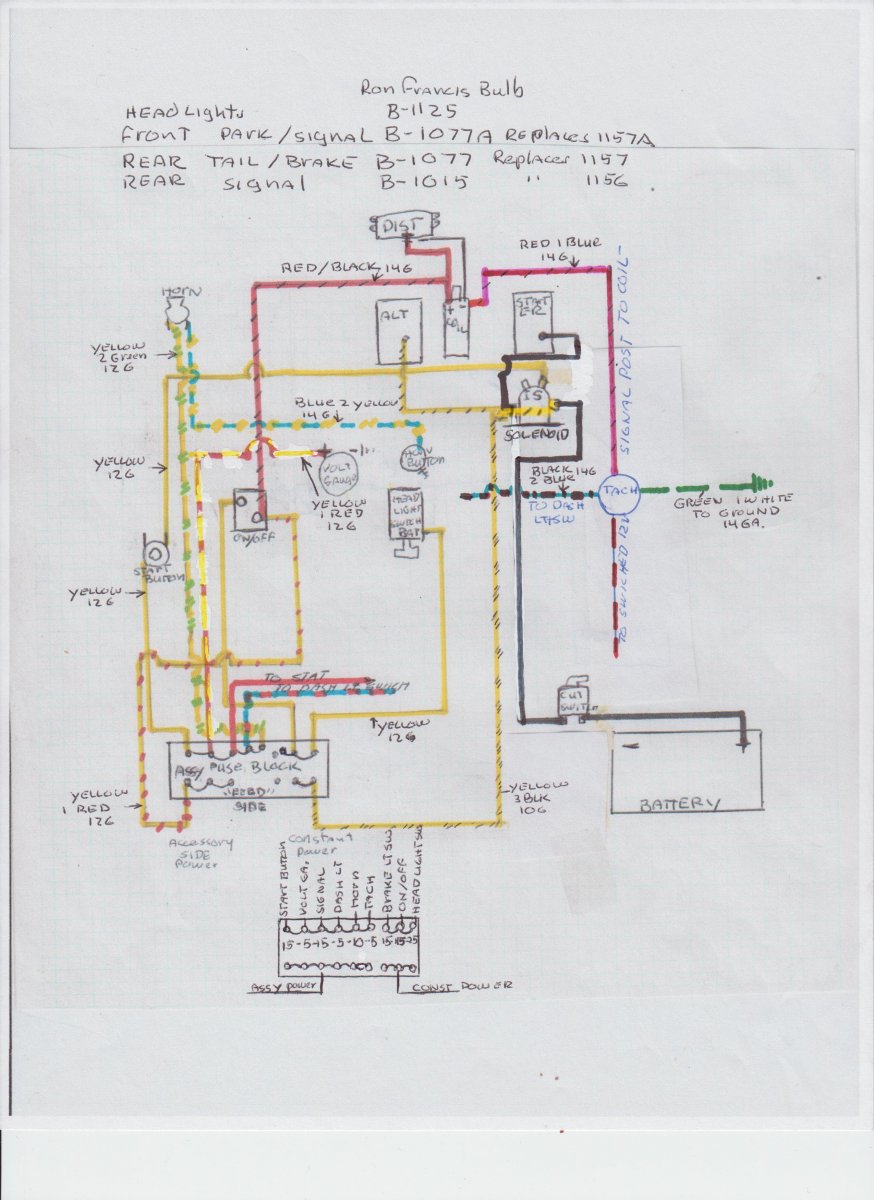 Ron Francis Bulb
HEADLights B-1125
Front PARK/signal B-1077A Replaces 1157A
REAR TAIL/BRAKE B-1077 Replaces 1157
REAR signal B-1015 " 1156
DIST
RED 1 BLUE
14G
RED/BLACK 14G
HORN
ALT
+ -
COIL
START
ER
SIGNAL POST TO COIL-
YELLOW
2 Green
12G
IS
SOLENOID
BLUE 2 YELLOW
14G
YELLOW
12G
VOLT
GAUGE
HORN
BUTTON
YELLOW
1 RED
12G
HEAD
LIGHT
SWITCH
BAT
BLACK 14G
2 BLUE
TO DASH
LT SW
TACH
GREEN 1 WHITE
TO GROUND
14GA.
ON/OFF
START
BUTTON
YELLOW
12G
TO SWITCHED 12V
TO STAT
TO DASH LT SWITCH
CUT
SWITCH
YELLOW
12G
ASSY FUSE BLOCK
"FEED"
SIDE
YELLOW
1 RED
12G
YELLOW
3 BLK
10G
- +
BATTERY
Accessory
SIDE
Power
Constant
Power
START BUTTON
VOLT GA.
SIGNAL
DASH LT
HORN
TACH
BRAKE LT SW
ON/OFF
HEADLIGHT SW
15-5-15-5-10-5 15-15-25
ASSY POWER CONST POWER